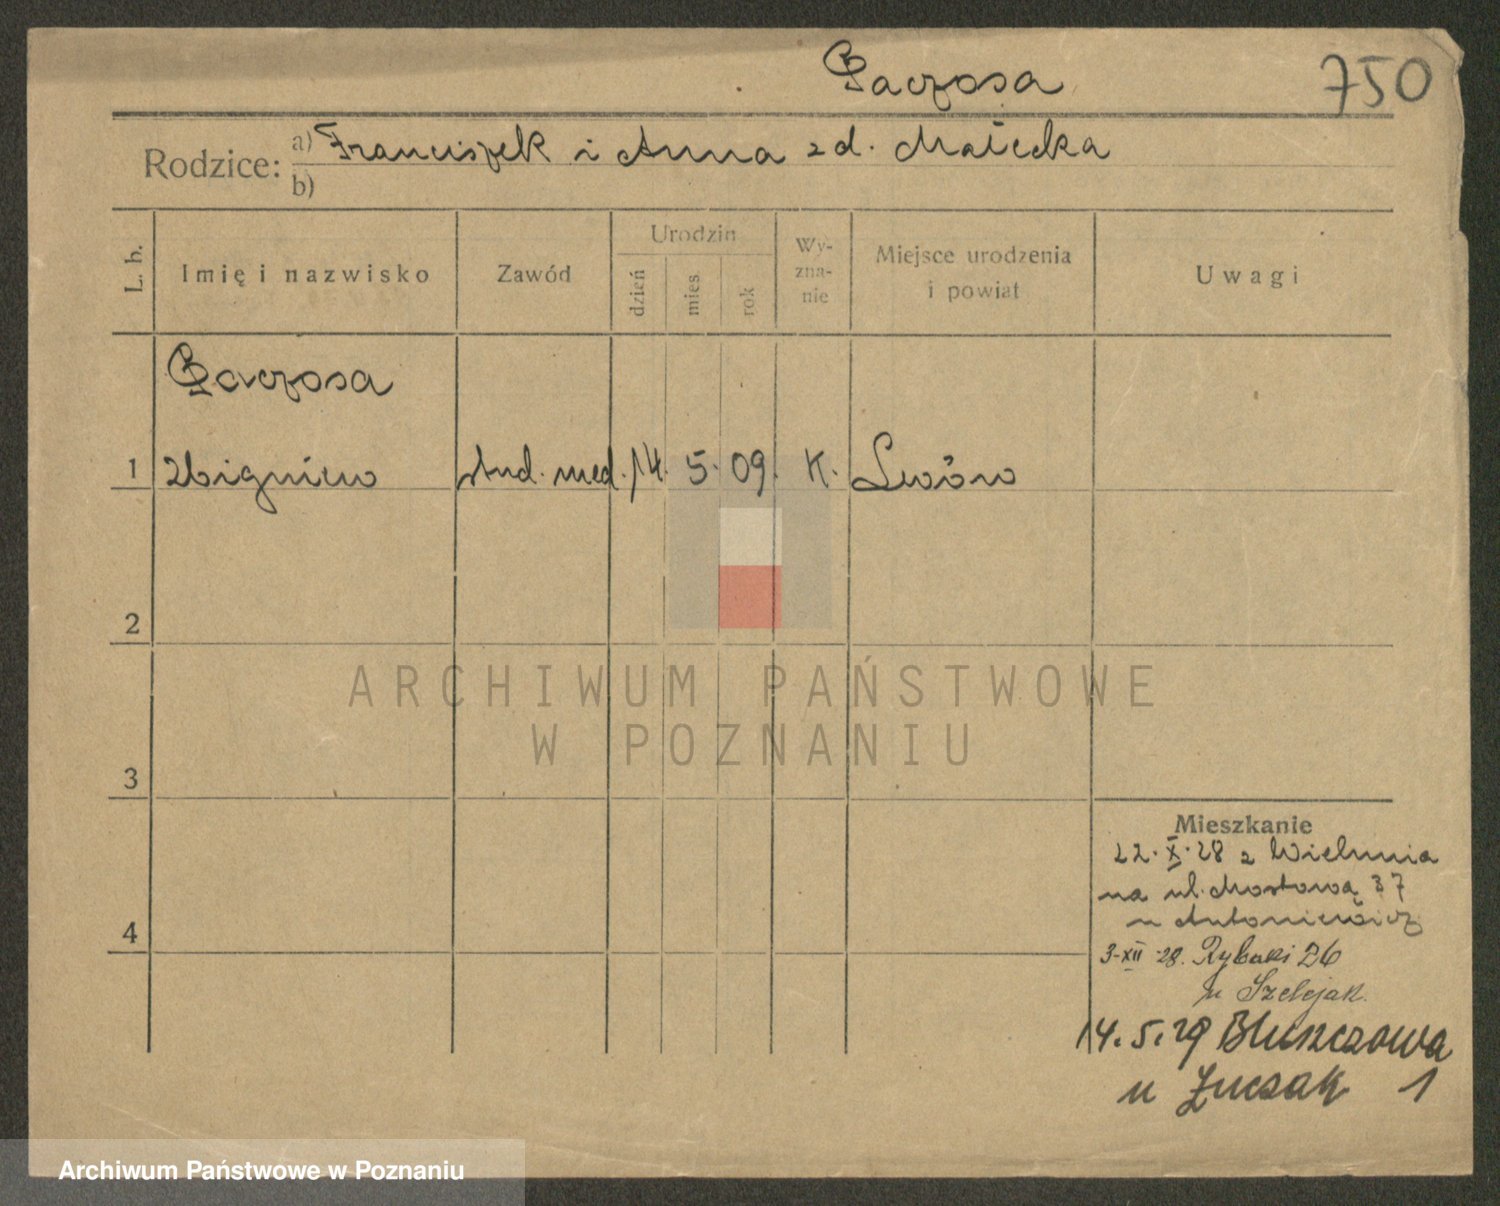 Paczosa
750
Rodzice:
a) Franciszek i Anna z d. Małecka
b)
L. b.
Imię i nazwisko
Zawód
Urodzin
dzień
mies.
rok
Wy-
zna-
nie
Miejsce urodzenia
i powiat
Uwagi
Paczosa
1 Zbigniew stud. med. 14. 5. 09. K. Lwów
2
3
4
ARCHIWUM PAŃSTWOWE
W POZNANIU
Mieszkanie
22.X.28 z Wielunia
na ul. Mostową 37
u Antoniewicz
3-XII-28. Rybaki 26
u Szelejak.
14.5.29 Bluszczowa
u 1
Archiwum Państwowe w Poznaniu